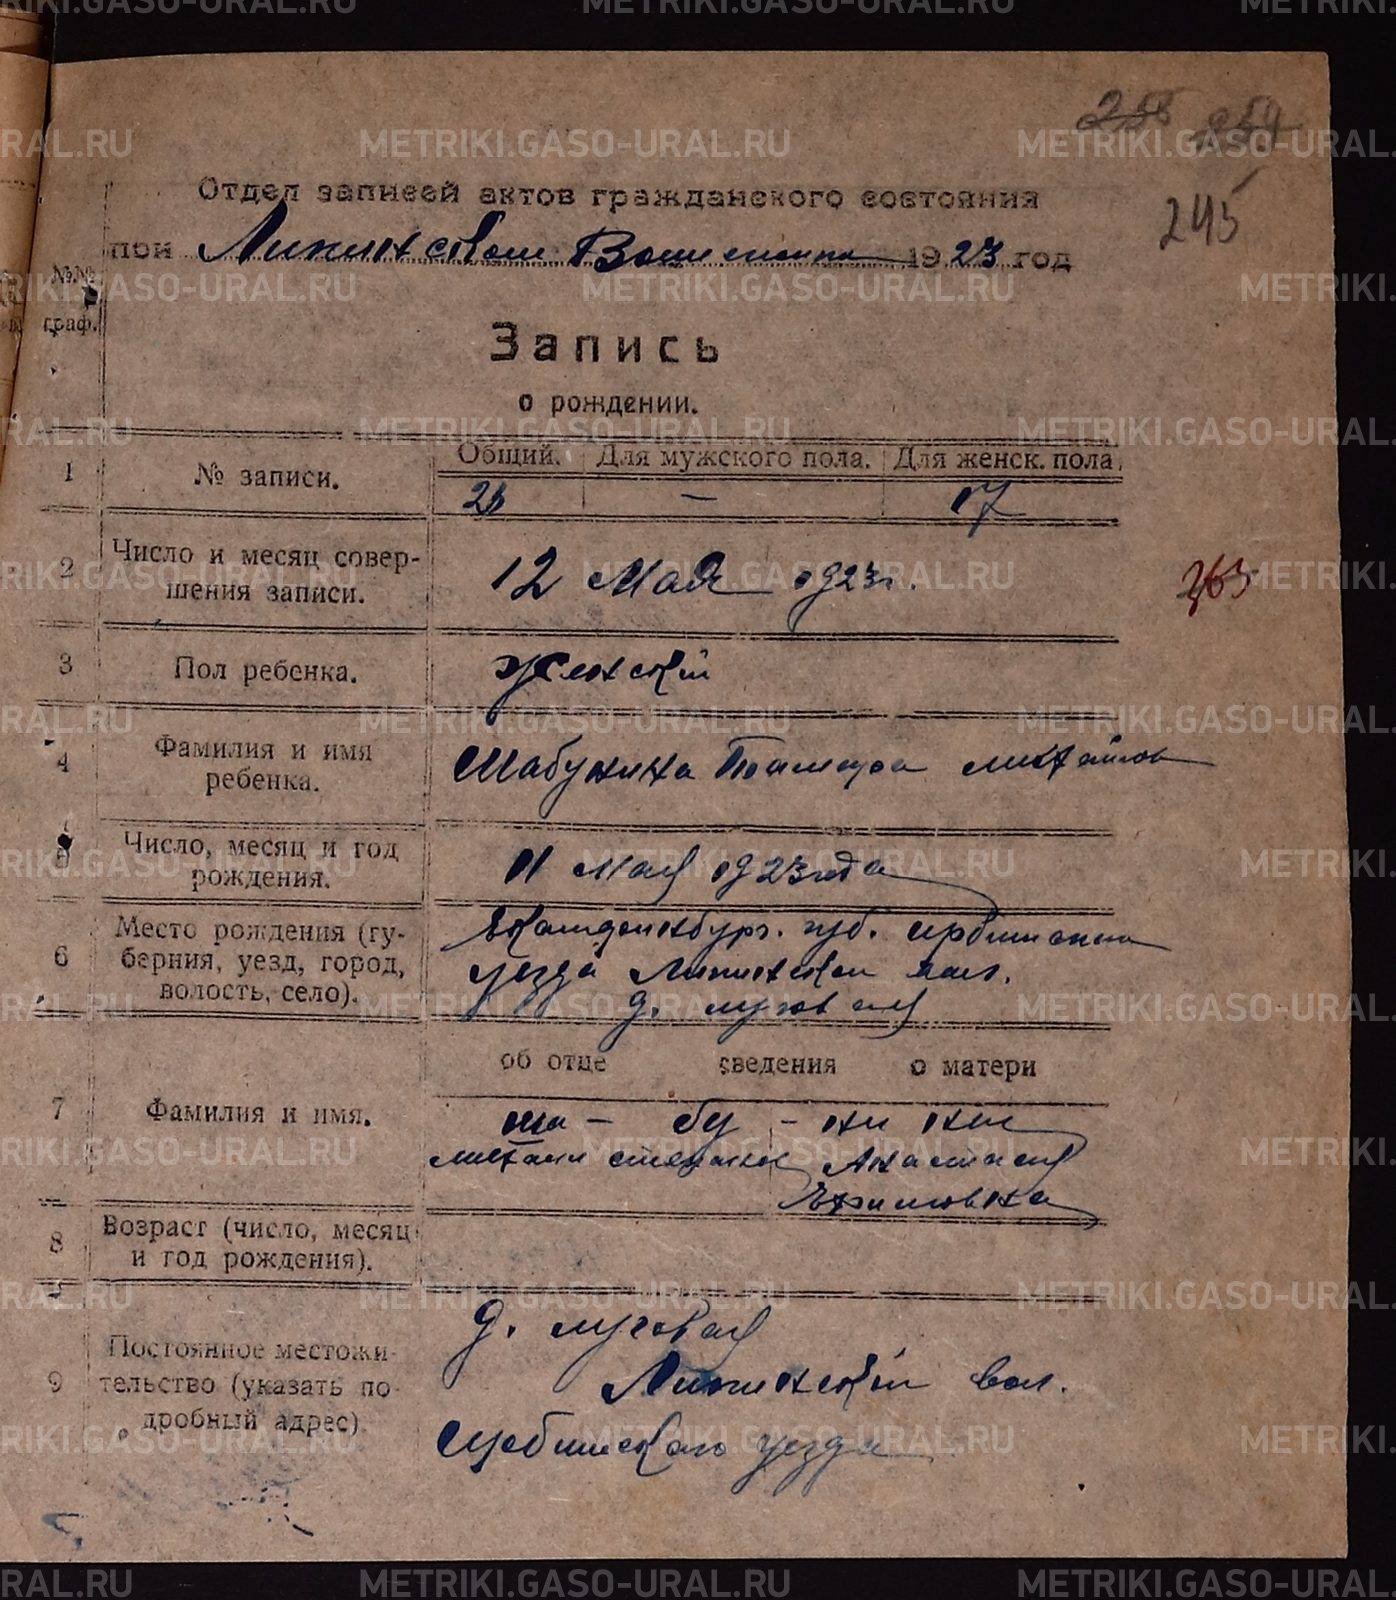 255 254
Отдел записей актов гражданского состояния
245
при Липинском Волисполк 1923 год
№№
граф.
Запись
о рождении.
1 № записи. Общий. Для мужского пола. Для женск. пола
26 — 17
2 Число и месяц совер-
шения записи. 12 Мая 1923 г.
263
3 Пол ребенка. Женский
4 Фамилия и имя
ребенка. Шабунина Тамара михайлов
5 Число, месяц и год
рождения. 11 Мая 1923 года
6 Место рождения (гу-
берния, уезд, город,
волость, село). Екатеринбург. губ. ирбитский
уезда Липинской вол.
д. луговая
об отце сведения о матери
7 Фамилия и имя. ша – бу – ни ны
михаил степанов Анастасия
Ефимовна
8 Возраст (число, месяц
и год рождения).
9 Постоянное местожи-
тельство (указать по-
дробный адрес) д. луговая
Липинский вол.
Ирбитского уезда
METRIKI.GASO-URAL.RU